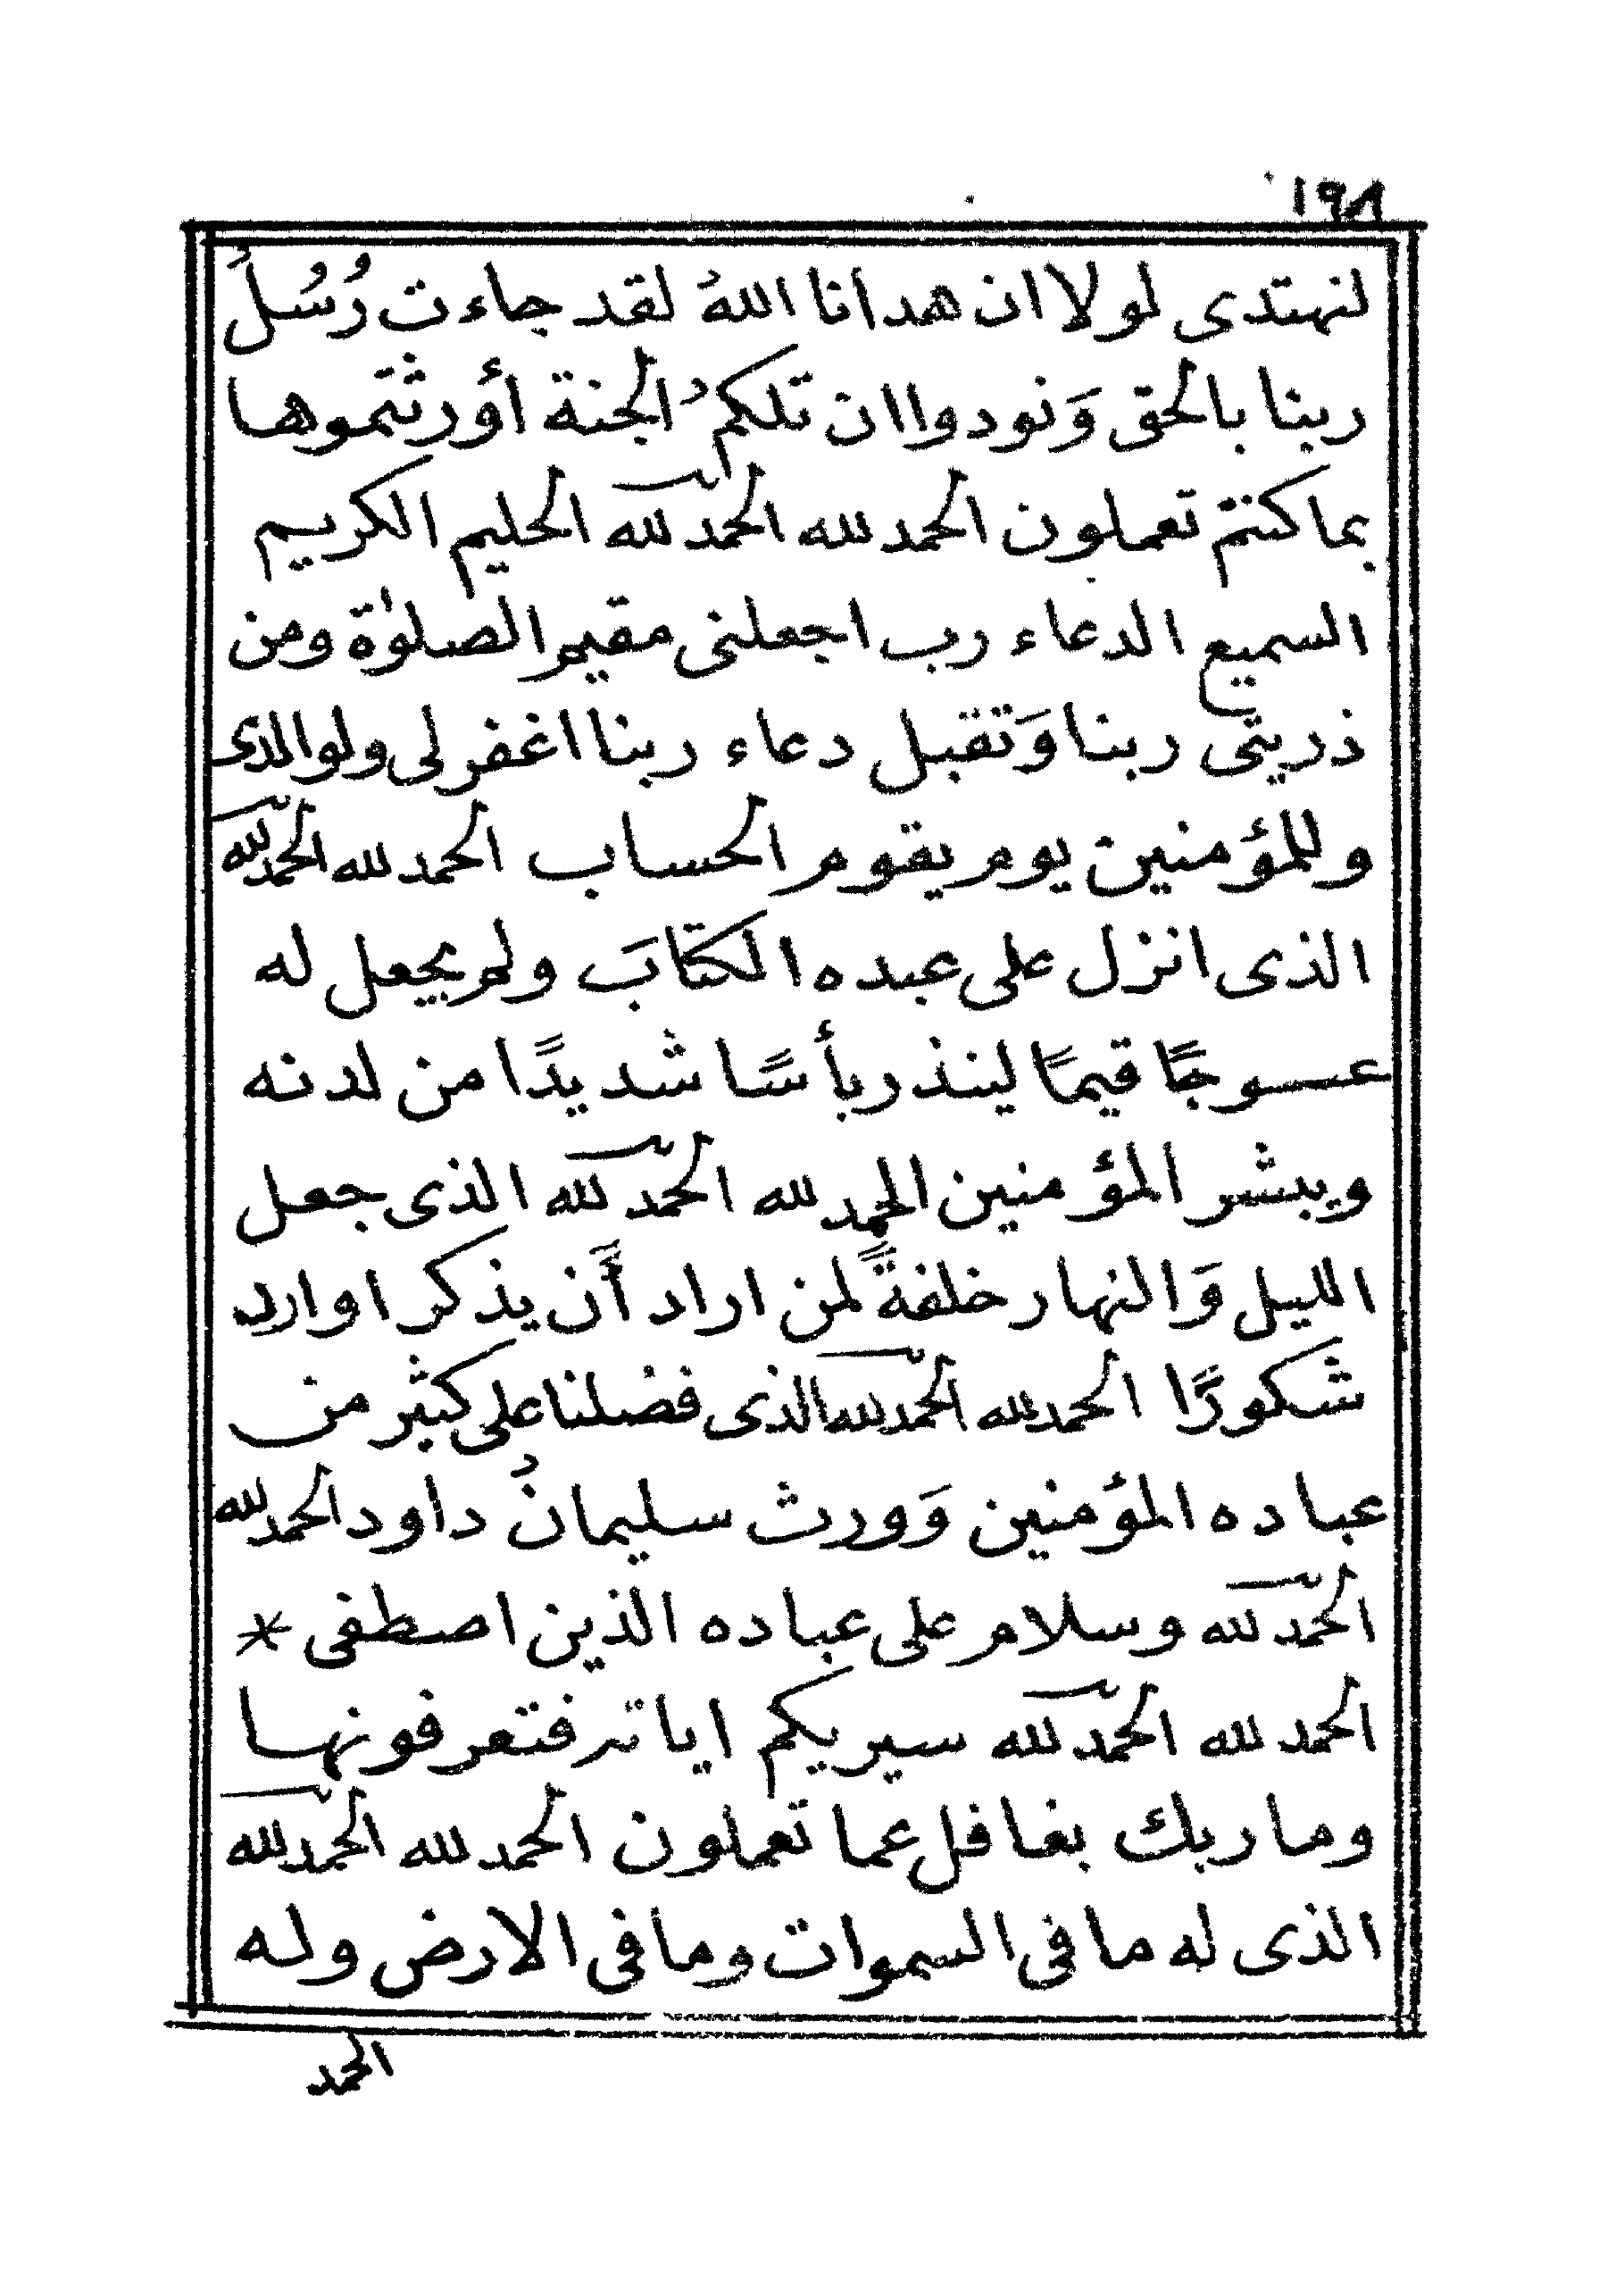 ١٩٨
لنهتدى لولا ان هدانا اللهُ لقد جاءت رُسُلُ
ربنا بالحق وَنودوا ان تلكمُ الجنة أورثتموها
بما كنتم تعملون الحمد لله الحمد لله الحليم الكريم
السميع الدعاء رب اجعلنى مقيم الصلوٰة ومن
ذريتى ربنا وَتقبل دعاء ربنا اغفر لى ولوالذى
وللمؤمنين يوم يقوم الحساب الحمد لله الحمد لله
الذى انزل على عبده الكتابَ ولم يجعل له
عوجًا قيمًا لينذر بأسًا شديدًا من لدنه
ويبشر المؤمنين الحمد لله الحمد لله الذى جعل
الليل وَالنهار خلفةً لمن اراد أَن يذكر او اراد
شكورًا الحمد لله الحمد لله الذى فضلنا على كثير من
عباده المؤمنين وَورث سليمانُ داود الحمد لله
الحمد لله وسلام على عباده الذين اصطفى *
الحمد لله الحمد لله سيريكم اياته فتعرفونها
وما ربك بغافل عما تعملون الحمد لله الحمد لله
الذى له ما فى السموات وما فى الارض وله
الحمد